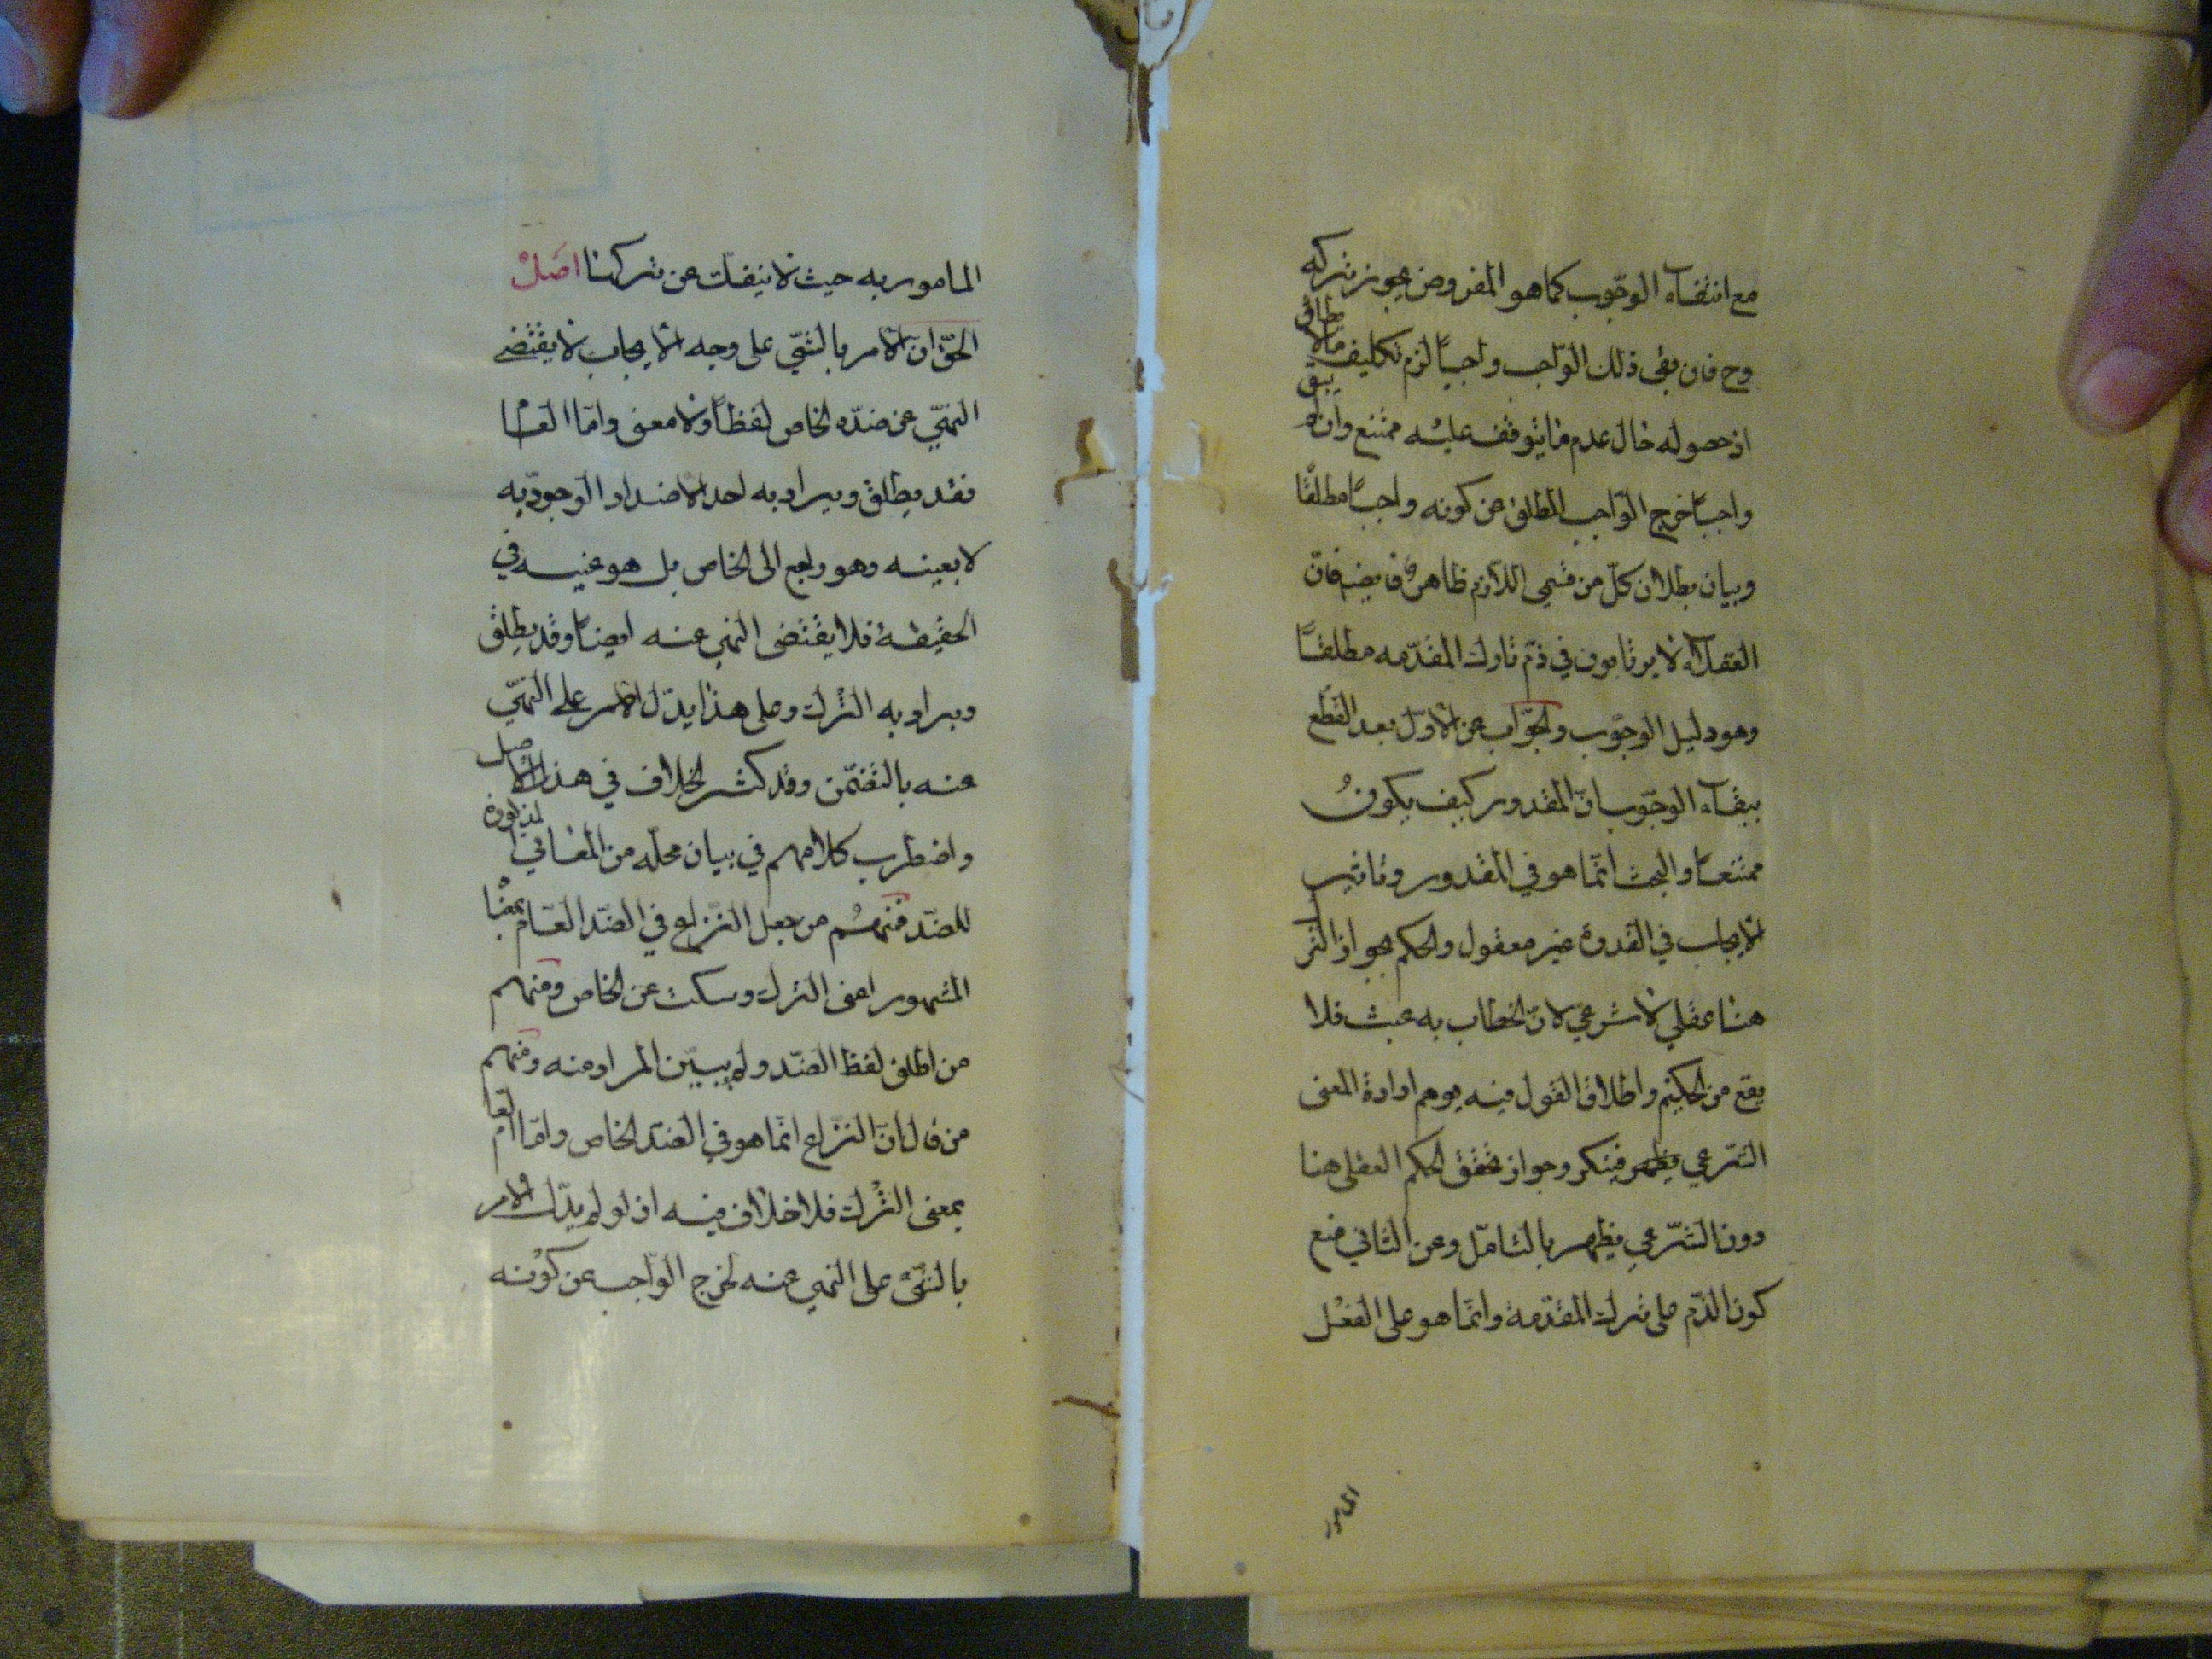 مع انتفآء الوجوب كما هو المفروض يجوز تركه
وح فان بقى ذلك الواجب واجباً لزم تكليف ما لا يطاق
اذ حصوله حال عدم ما يتوقف عليه ممتنع وان لم يبق
واجباً خرج الواجب المطلق عن كونه واجباً مطلقاً
وبيان بطلان كلّ من قسمي اللازم ظاهر وايضا فان
العقلآء لا يرتابون في ذمّ تارك المقدّمه مطلقاً
وهو دليل الوجوب والجواب عن الاوّل بعد القطع
ببقآء الوجوب انّ المقدور كيف يكون
ممتنعاً والبحث انّما هو في المقدور وتاثير
الايجاب في القدرة غير معقول والحكم بجواز الترك
هنا عقلي لا شرعي لانّ الخطاب به عبث فلا
يقع من الحكيم واطلاق القول فيه يوهم ارادة المعنى
الشرعي فينكر وجواز تحقق الحكم العقلى هنا
دون الشرعي يظهر بالتامّل وعن الثاني منع
كون الذّم على ترك المقدّمة وانّما هو على الفعل
المامور
المامور به حيث لا ينفك عن تركها اصل
الحقّ ان الامر بالشيّ على وجه الايجاب لا يقتضى
النهيّ عن ضدّه الخاص لفظاً ولا معنى وامّا العام
فقد يطلق ويراد به احد الاضداد الوجوديه
لا بعينه وهو راجع الى الخاص بل هو عينه في
الحقيقة فلا يقتضى النهي عنه ايضاً وقد يطلق
ويراد به الترك وعلى هذا يدّل الامر على النهيّ
عنه بالتضمّن وقد كثر الخلاف في هذا الاصل
واضطرب كلامهم في بيان محلّه من المعاني المذكورة
للضدّ فمنهم من جعل النّزاع في الضدّ العام بمعناه
المشهور اعنى الترك وسكت عن الخاص ومنهم
من اطلق لفظ الضدّ ولم يبيّن المراد منه ومنهم
من قال انّ النزاع انّما هو في الضدّ الخاص وامّا العام
بمعنى الترك فلا خلاف فيه اذ لو لم يدّل الامر
بالشئ على النهي عنه لخرج الواجب عن كونه